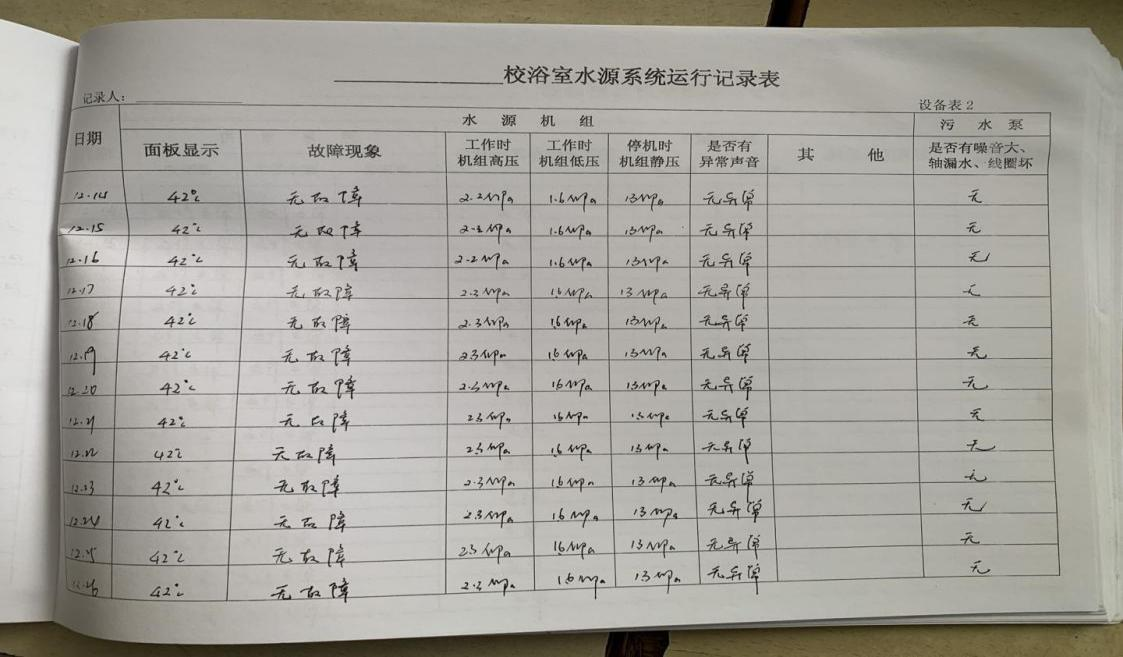 校浴室水源系统运行记录表
记录人：
设备表2
日期 水源机组 污水泵
面板显示 故障现象 工作时机组高压 工作时机组低压 停机时机组静压 是否有异常声音 其他 是否有噪音大、轴漏水、线圈坏
12.14 42℃ 无故障 2.2MPa 1.6MPa 13MPa 无异常 无
12.15 42℃ 无故障 2.2MPa 1.6MPa 13MPa 无异常 无
12.16 42℃ 无故障 2.2MPa 1.6MPa 13MPa 无异常 无
12.17 42℃ 无故障 2.3MPa 16MPa 13MPa 无异常 无
12.18 42℃ 无故障 2.3MPa 16MPa 13MPa 无异常 无
12.19 42℃ 无故障 23MPa 16MPa 13MPa 无异常 无
12.20 42℃ 无故障 2.3MPa 16MPa 13MPa 无异常 无
12.21 42℃ 无故障 23MPa 16MPa 13MPa 无异常 无
12.22 42℃ 无故障 23MPa 16MPa 13MPa 无异常 无
12.23 42℃ 无故障 2.3MPa 16MPa 13MPa 无异常 无
12.24 42℃ 无故障 2.3MPa 16MPa 13MPa 无异常 无
12.25 42℃ 无故障 23MPa 16MPa 13MPa 无异常 无
12.26 42℃ 无故障 2.3MPa 16MPa 13MPa 无异常 无